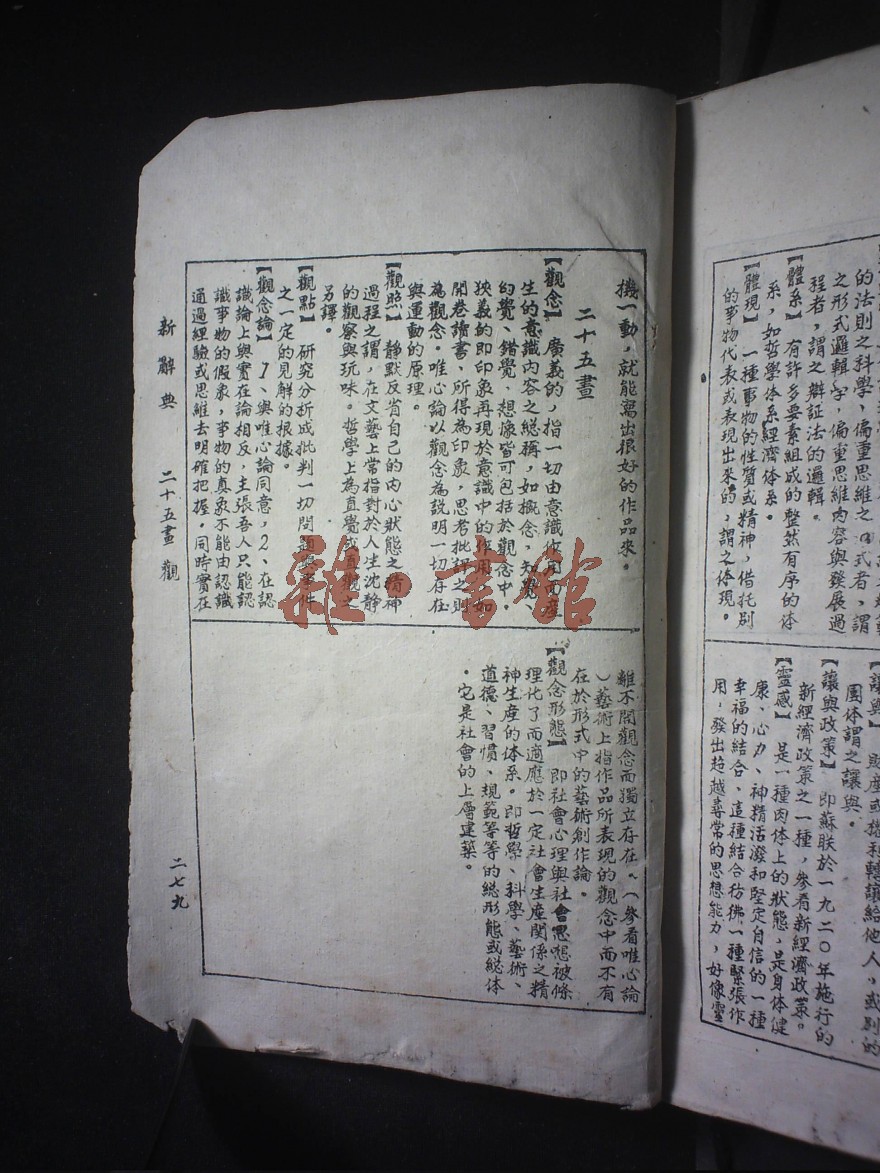 的法則之科學，偏重思維之
之形式邏輯字，偏重思維內容與發展過
程者，謂之辯証法的邏輯。
【體系】 有許多要素組成的整然有序的体
系，如哲學体系經濟体系。
【體現】 一種事物的性質或精神，借托別
的事物代表或表現出來的，謂之体現。
【讓與】 財產或權利轉讓給他人，或別的
團体謂之讓與。
【讓與政策】 即蘇联於一九二〇年施行的
新經濟政策之一種，參看新經濟政策。
【靈感】 是一種肉体上的狀態，是身体健
康、心力、神精活潑和堅定自信的一種
幸福的結合，這種結合彷彿一種緊張作
用，發出超越尋常的思想能力，好像靈
機一動，就能寫出很好的作品來。
二十五畫
【觀念】 廣義的，指一切由意識作用而產
生的意識內容之総稱，如概念，知覺、
幻覺、錯覺、想像皆可包括於觀念中，
狹義的即印象再現於意識中的作用，如
開卷讀書，所得為印象，思考批評之則
為觀念。唯心論以觀念為說明一切存在
與運動的原理。
【觀照】 靜默反省自己的內心狀態之精神
過程之謂，在文藝上常指對於人生沈靜
的觀察與玩味。哲學上為直覺或直觀之
另譯。
【觀點】 研究分析或批判一切問題與事件
之一定的見解的根據。
【觀念論】 1、與唯心論同意，2、在認
識論上與實在論相反，主張吾人只能認
識事物的假象，事物的真象不能由認識
通過經驗或思維去明確把握，同時實在
離不開觀念而獨立存在。（參看唯心論
）藝術上指作品所表現的觀念中而不有
在於形式中的藝術創作論。
【觀念形態】 即社會心理與社會思想被條
理化了而適應於一定社會生產関係之精
神生産的体系。即哲學、科學、藝術、
道德、習慣、規範等等的総形態或総体
。它是社會的上層建築。
新辭典 二十五畫 觀 二七九
雜·書館